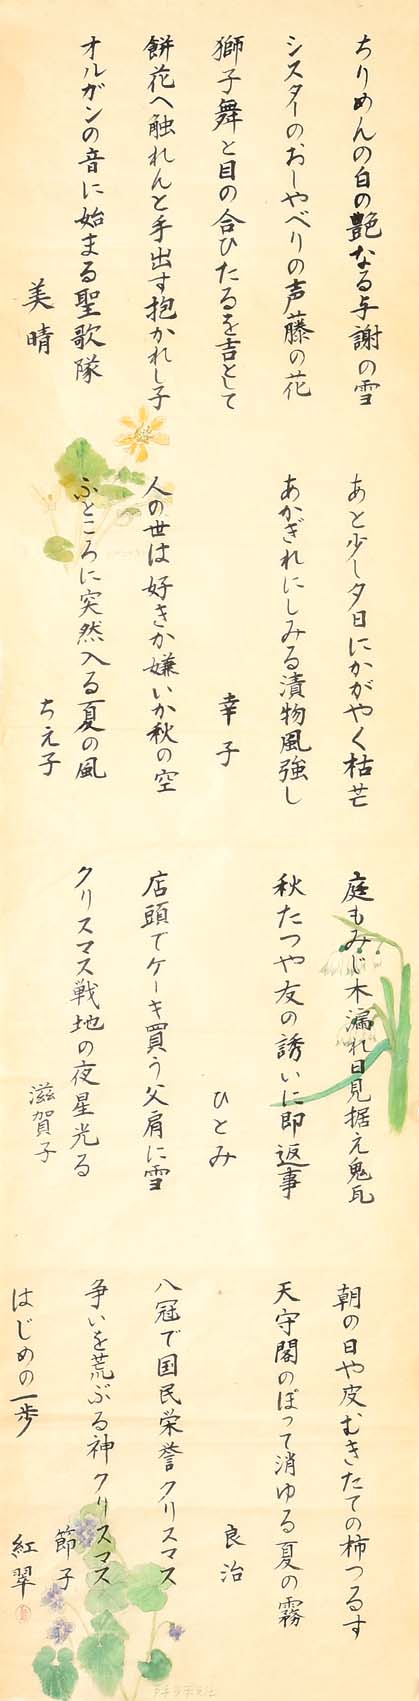 ちりめんの白の艶なる与謝の雪
シスターのおしゃべりの声藤の花
獅子舞と目の合ひたるを吉として
餅花へ触れんと手出す抱かれし子
オルガンの音に始まる聖歌隊
美晴
あと少し夕日にかがやく枯芒
あかぎれにしみる漬物風強し
幸子
人の世は好きか嫌いか秋の空
ふところに突然入る夏の風
ちえ子
庭もみじ木漏れ日見据え鬼瓦
秋たつや友の誘いに即返事
ひとみ
店頭でケーキ買う父肩に雪
クリスマス戦地の夜星光る
滋賀子
朝の日や皮むきたての柿つるす
天守閣のぼって消ゆる夏の霧
良治
八冠で国民栄誉クリスマス
争いを荒ぶる神クリスマス
節子
はじめの一歩
紅翠